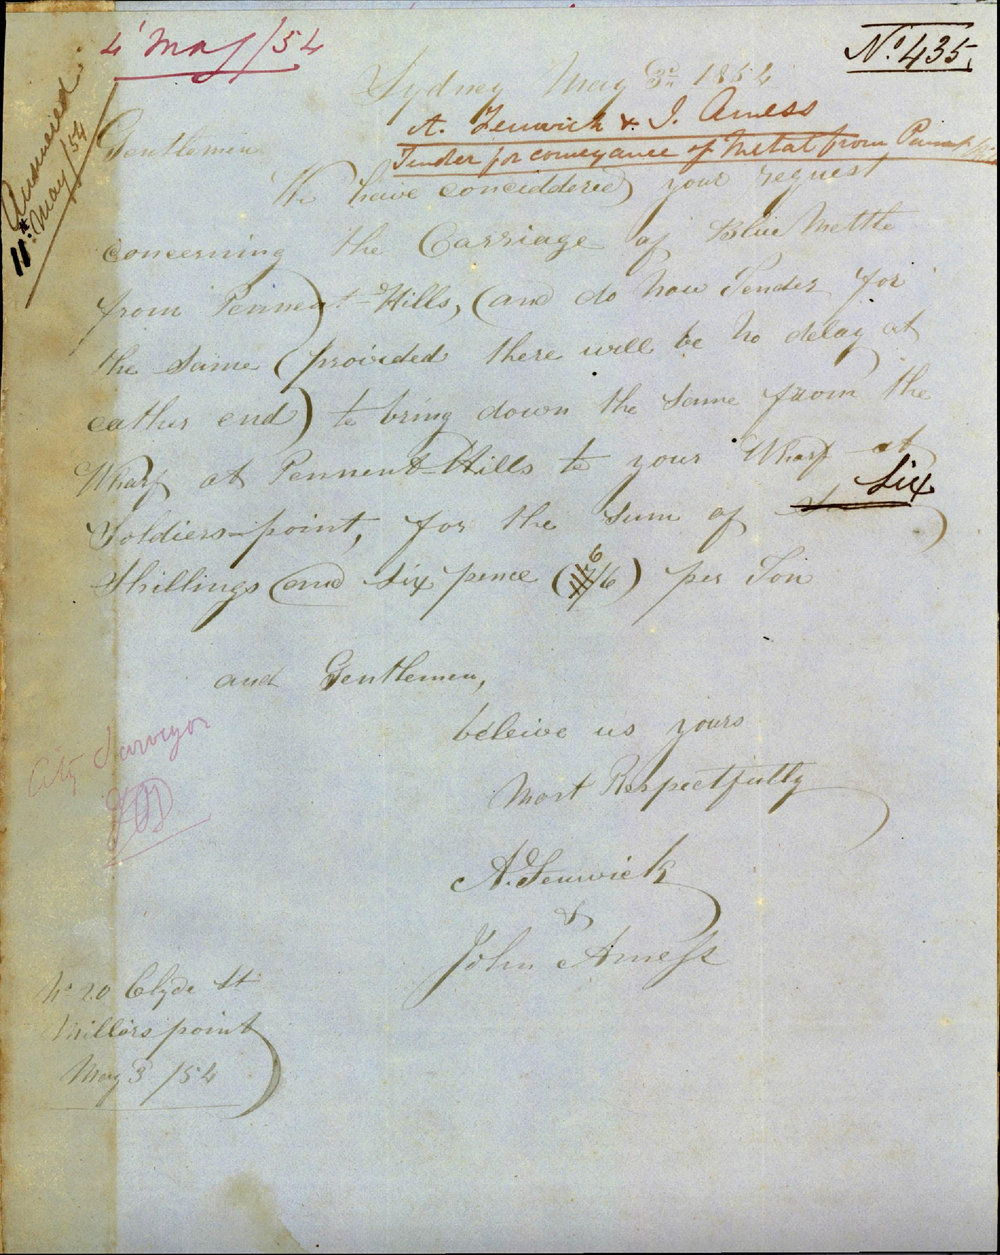 4 May/54
No. 435
Sydney May 3rd 1854
A. Fenwick & J. Amess
Tender for conveyance of Metal from
Answered
11th May/54
Gentlemen
We have conciddered your request
concerning the Carriage of Blue Mettle
from Pennent-Hills, and do now Tender for
the same (proivded there will be no delay at
eather end) to bring down the same from the
Wharf at Pennent-Hills to your Wharf at
Soldiers-point, for the Sum of six
Shillings and six pence (6/6) per Ton
and Gentlemen,
beleive us yours
Most Respectfully
A. Fenwick
&
John Amess
City Surveyor
No 20 Clyde St
Millers point
May 3 /54